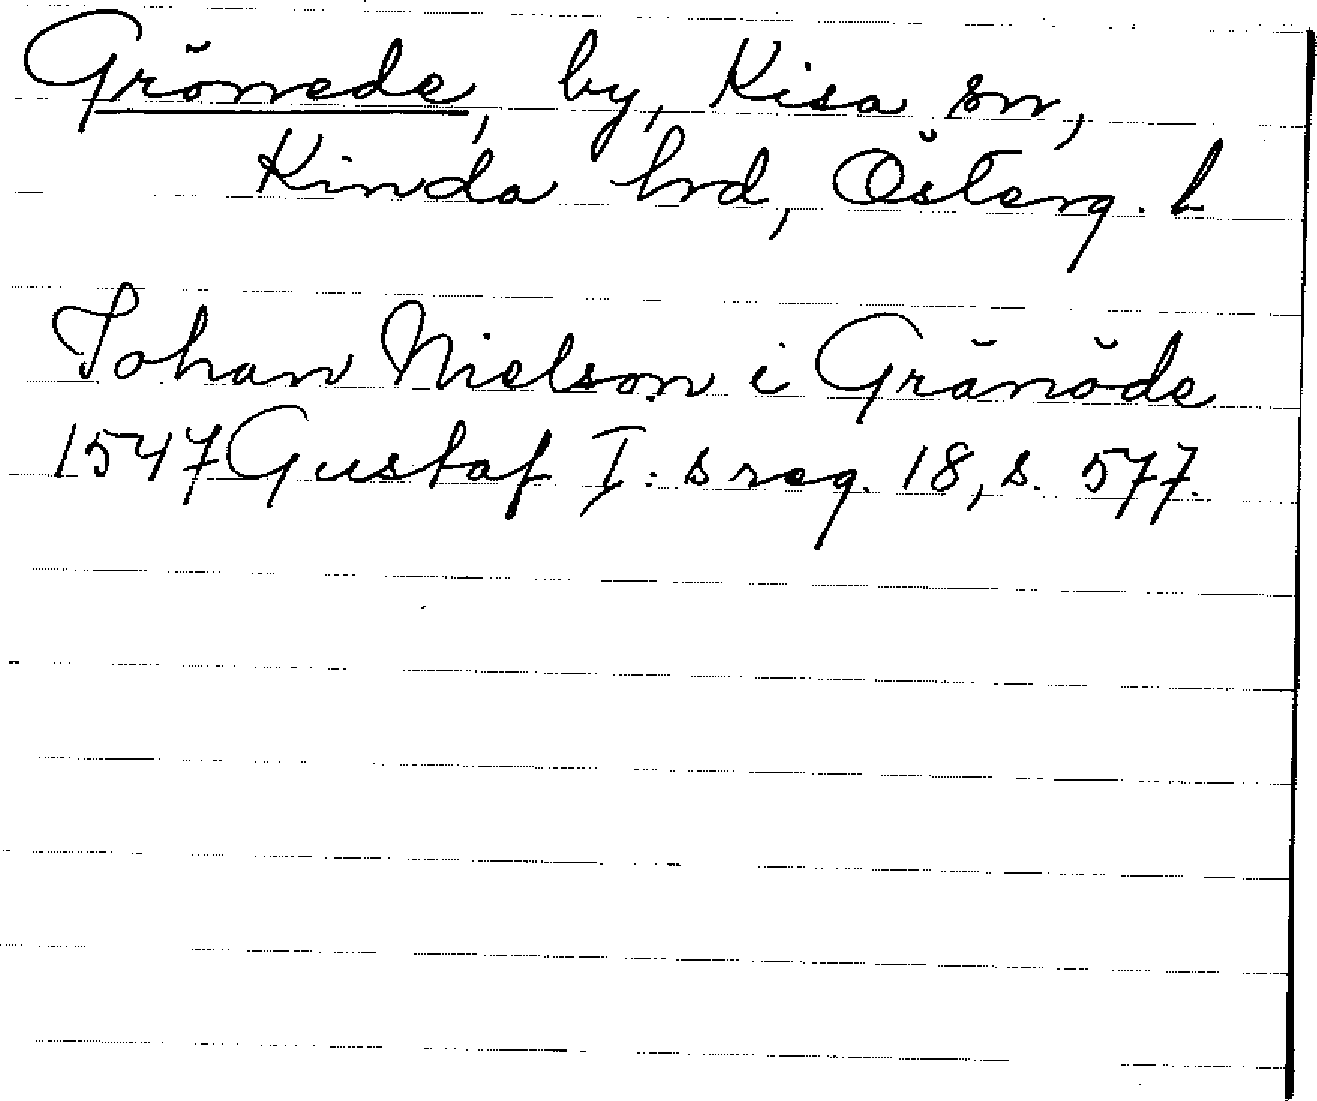 Grönede, by, Kisa sn,
Kinda hrd, Österg. L
Johan Nielson i Gränöde
1547 Gustaf I:s reg. 18, s. 577.